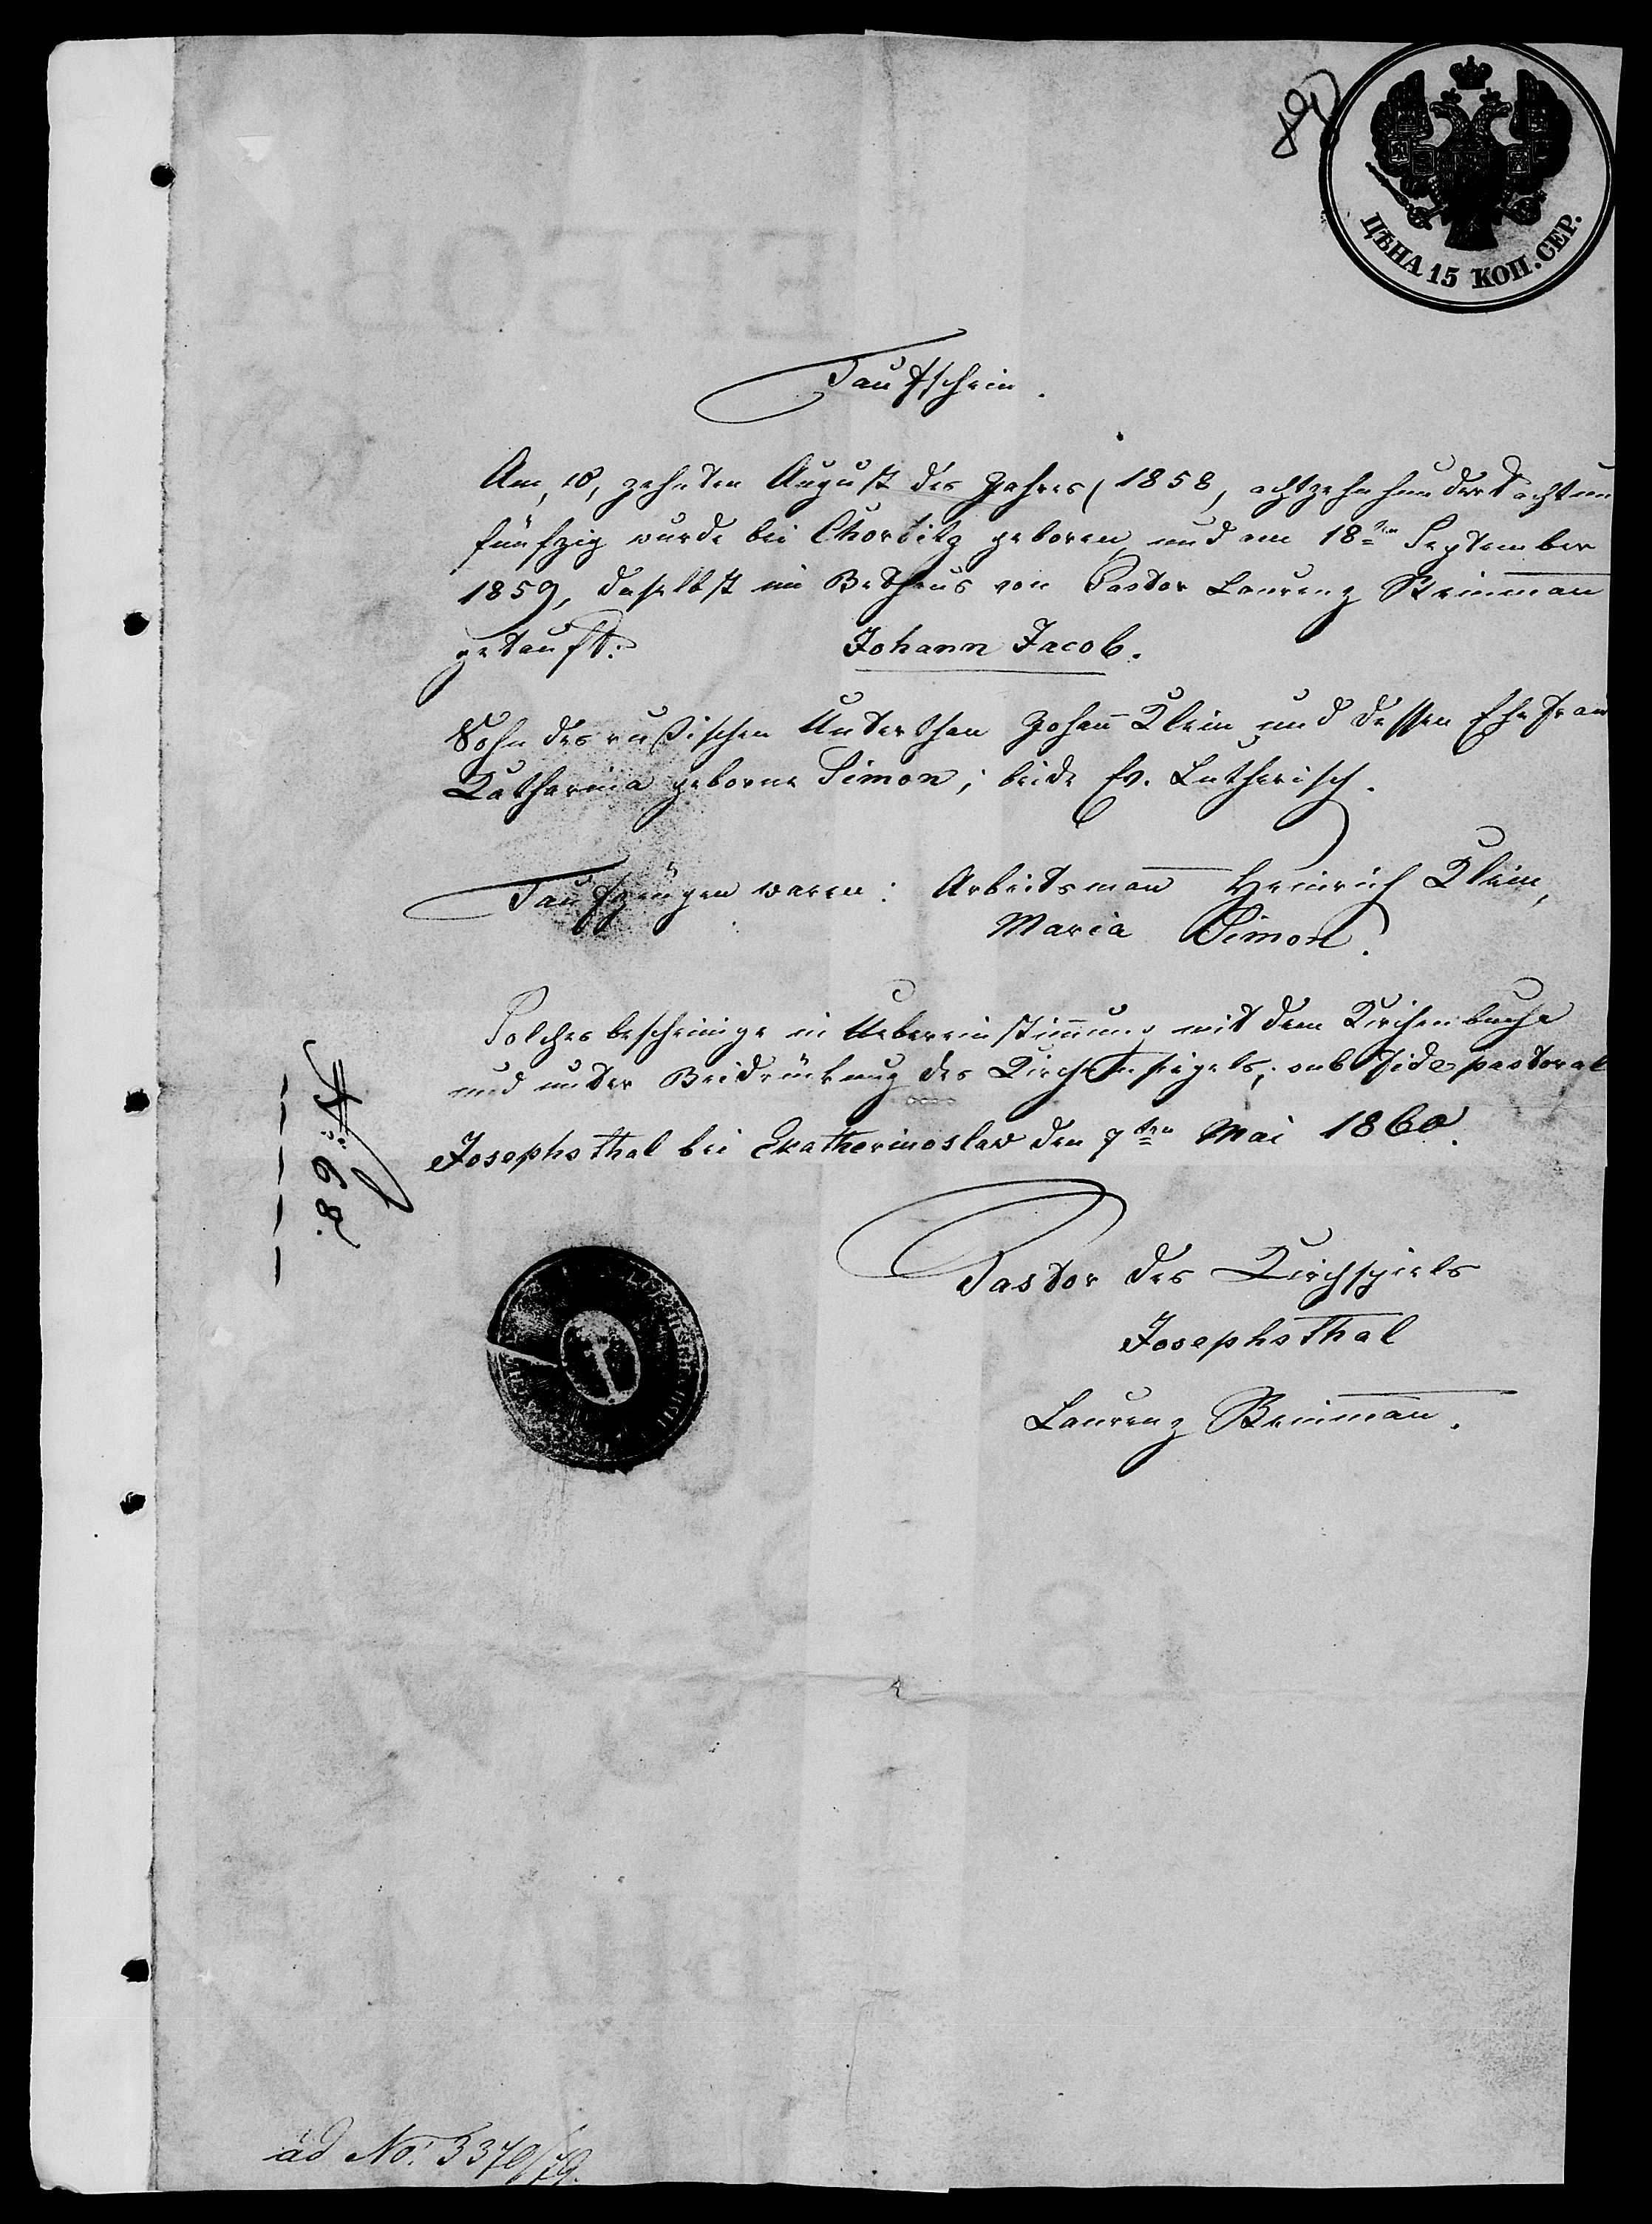 ЦѢНА 15 КОП. СЕР.
Taufschein.
Am, 10, zehnten August des Jahres, 1858, achtzehnhundert acht un
fünfzig wurde bei Chortitz geboren und am 18ten September
1859, daselbst im Bethaus von Pastor Laurenz
getauft: Johann Jacob.
Sohn des rußischen Unterthan Johan̅ Klein und dessen Ehefrau
Katharina geborne Simon; beide Ev. Lutherisch.
Taufzeugen waren: Arbeitsman̅ Heinrich Klein,
Maria Simon.
Solches bescheinige in Uebereinstim̅ung mit dem Kirchenbuche
und unter Beidrückung des Kirchensiegels; sub fide pastorali
Josephsthal bei Ekatherinoslaw den 7ten Mai 1860.
Pastor des Kirchspiels
Josephsthal
Laurenz
№ 68.
ad No: 3370/79.